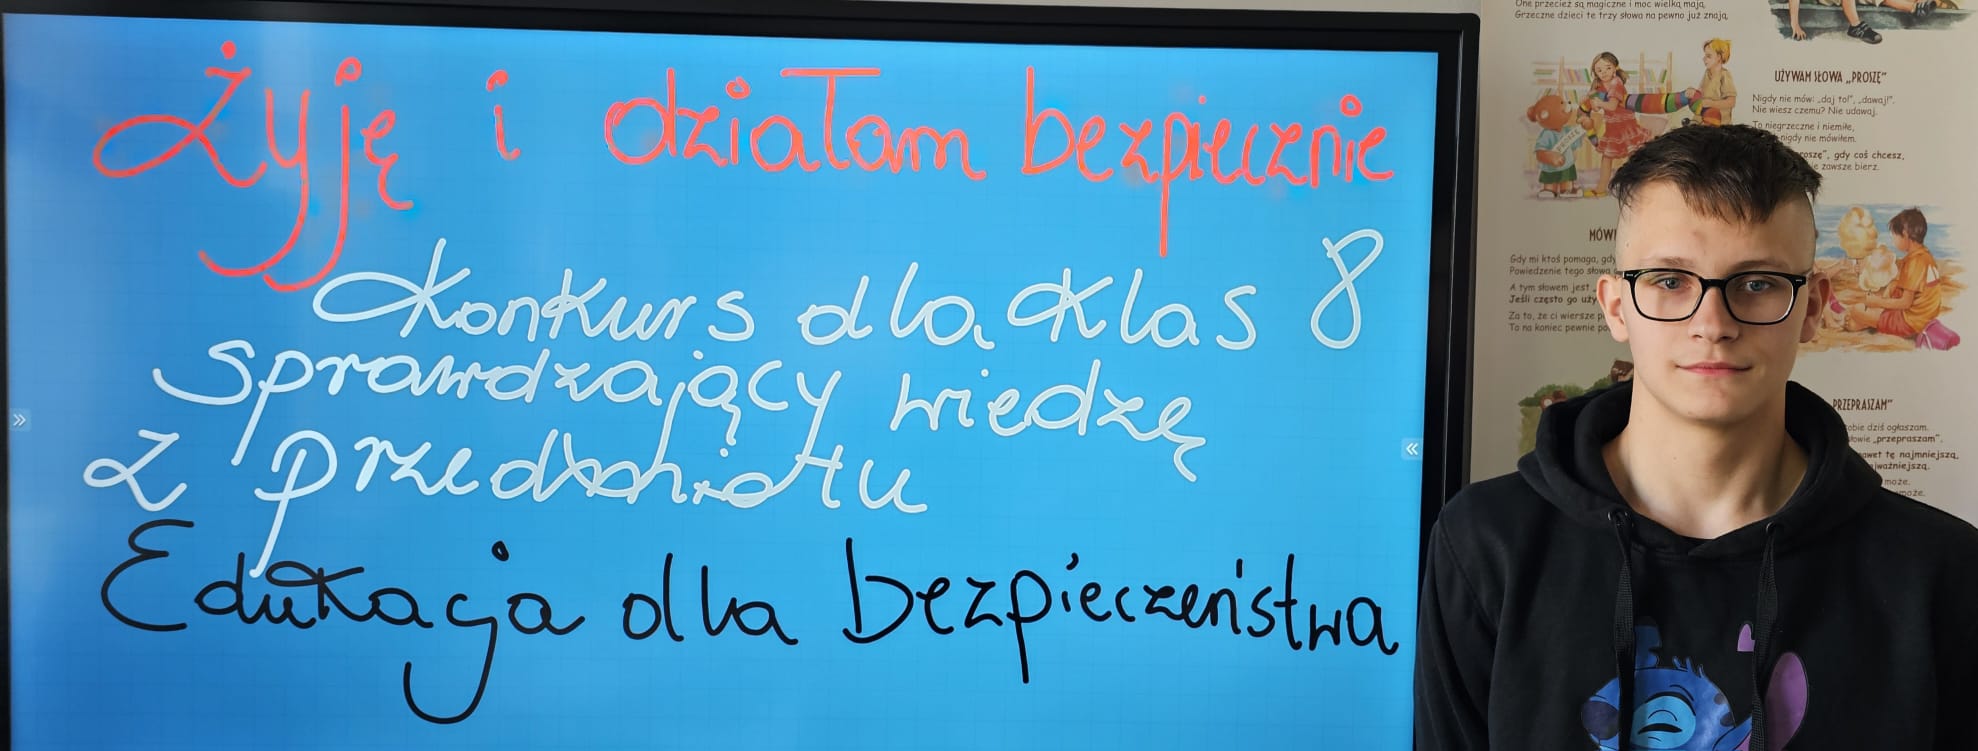 Żyję i działam bezpiecznie
Konkurs dla klas 8
sprawdzający wiedzę
z przedmiotu
Edukacja dla bezpieczeństwa
One przecież są magiczne i moc wielką mają,
Grzeczne dzieci te trzy słowa na pewno już znają,
UŻYWAM SŁOWA „PROSZĘ”
Nigdy nie mów: „daj to!”, „dawaj!”.
Nie wiesz czemu? Nie udawaj.
To niegrzeczne i niemiłe,
nigdy nie mówiłem.
gdy coś chcesz,
zawsze bierz.
Gdy mi ktoś pomaga, gdy
Powiedzenie tego słowa
A tym słowem jest
Jeśli często go
Za to, że ci wiersze
To na koniec pewnie
PRZEPRASZAM”
dziś ogłaszam.
„przepraszam”,
tę najmniejszą,
może.